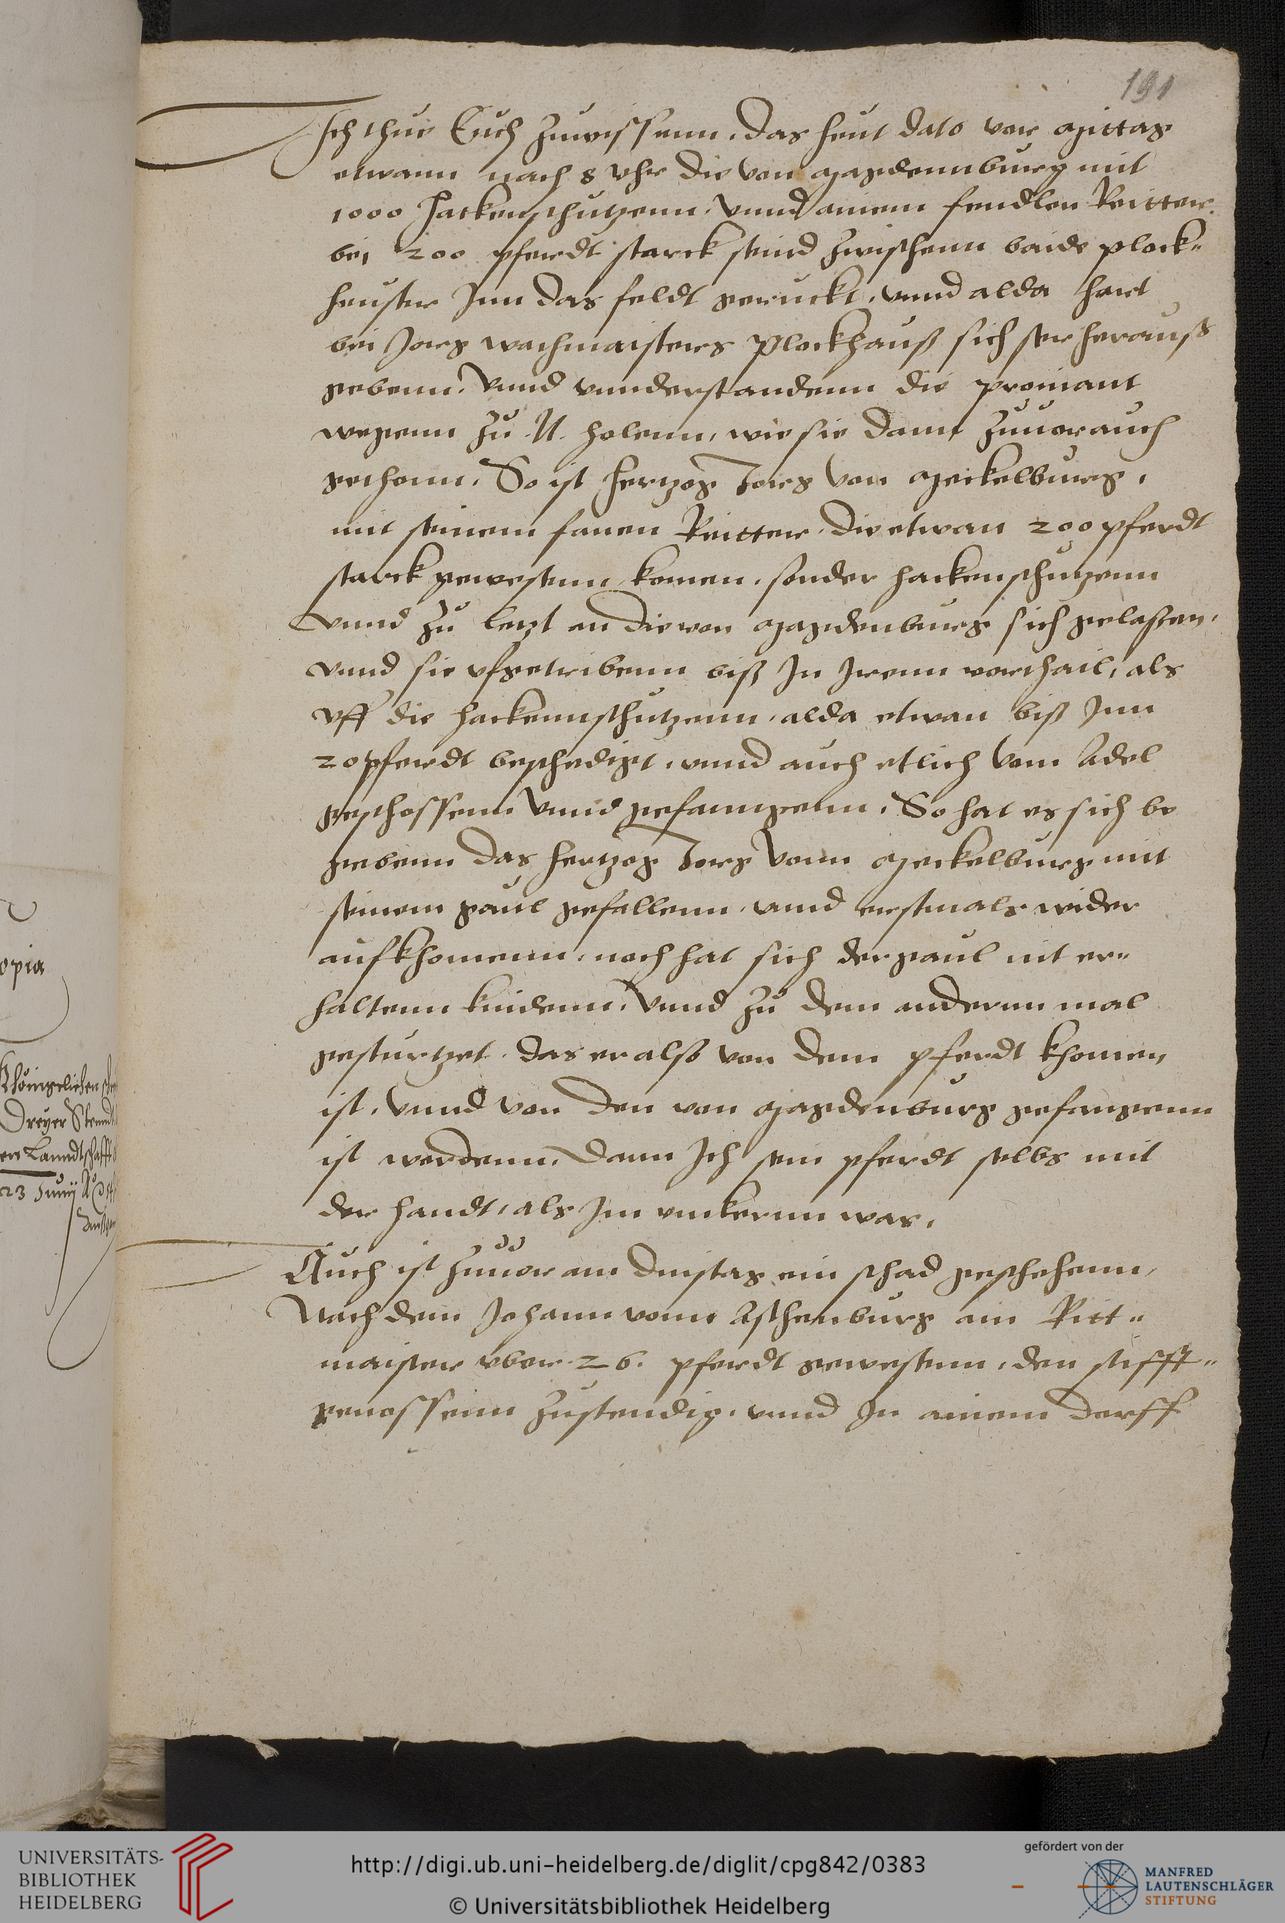 191
Ich thue Euch zuwissenn, das heut dato vor Mittag
etwann nach 8 vhr die von Magdennburg mit
1000 Hackenschutzenn, vnnd ainem fendlen Reitter
bei 200 pferdt starck seind zwischenn baide plock-
heuser Inn das feldt geruckt, vnnd alda hart
bei Jorg wachmaisters Plockhauß sich ser herauß
gebenn, Vnnd vnnderstandenn die proviant
wegenn zu N. holenn, wie sie dann zuuor auch
gethonn, So ist Hertzog Jorg von Meckelburg,
mit seinem fanen Reitter, die etwan 200 pferdt
starck gewesenn, komen, sonder hackenschutzenn
vnnd zu letzt an die von Magdenburg sich gelassen,
vnnd sie vfgetribenn biß In Irenn vorthail, als
vff die hackennschutzenn, alda etwan biß Inn
20 pferdt beschedigt, vnnd auch etlich vom Adel
geschossenn vnnd gefanngenn, So hat es sich be
gebenn das Hertzog Jorg vonn Meckelburg mit
seinem gaul gefallenn, vnnd erstmals wider
aufkhomenn, noch hat sich der gaul nit er-
haltenn kindenn, vnnd zu dem andernn mal
gesturtzet, das er also von dem pferdt khomen
ist, vnnd von den von Magdenburg gefangenn
ist wordenn, dann Ich sein pferdt selbs mit
der handt, als Im vmkernn war,
Auch ist zuuor am dinstag ein schad geschehenn,
Nach dem Johann vonn Aschenburg ain Ritt-
maister vber 26. pferdt gewesenn, den stifft-
genossenn zustendig, vnnd In ainem dorff
opia
Dreyer
23 Junij
UNIVERSITÄTS-
BIBLIOTHEK
HEIDELBERG
http://digi.ub.uni-heidelberg.de/diglit/cpg842/0383
© Universitätsbibliothek Heidelberg
gefördert von der
MANFRED
LAUTENSCHLÄGER
STIFTUNG